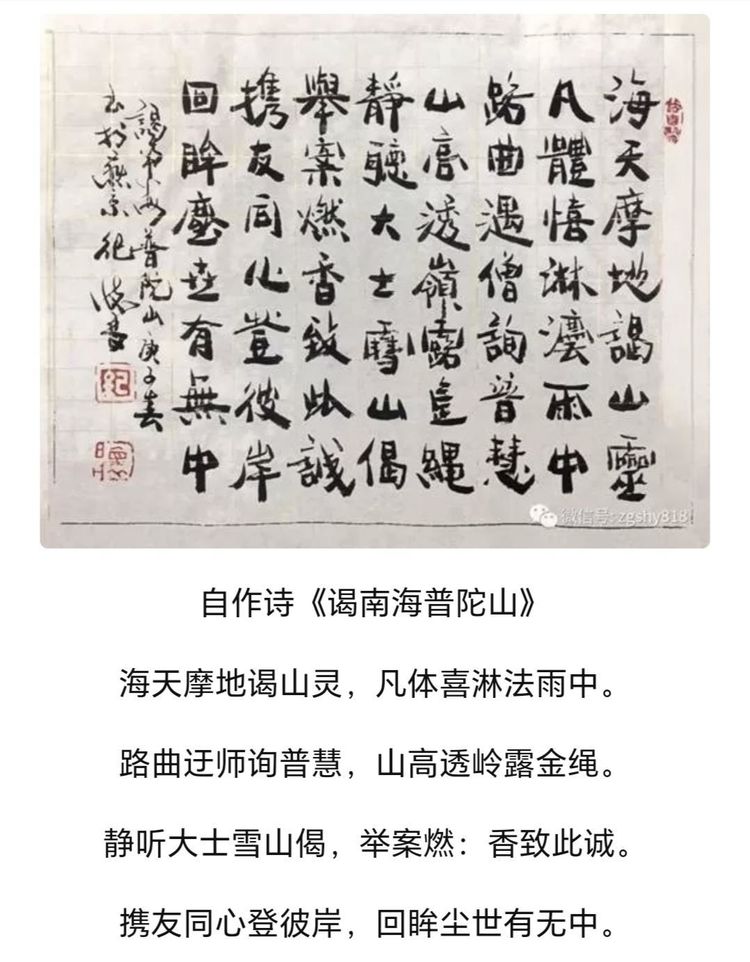 海天摩地謁山靈
凡體憘淋灋雨中
路曲遇僧詢普慧
山高透嶺露繩
靜聽大士雪山偈
舉案燃香致此誠
携友同心登彼岸
回眸塵世有無中
謁南海普陀山庚子春
於燕京紀
紀
微信号: zgshy818
自作诗《谒南海普陀山》
海天摩地谒山灵，凡体喜淋法雨中。
路曲迂师询普慧，山高透岭露金绳。
静听大士雪山偈，举案燃：香致此诚。
携友同心登彼岸，回眸尘世有无中。